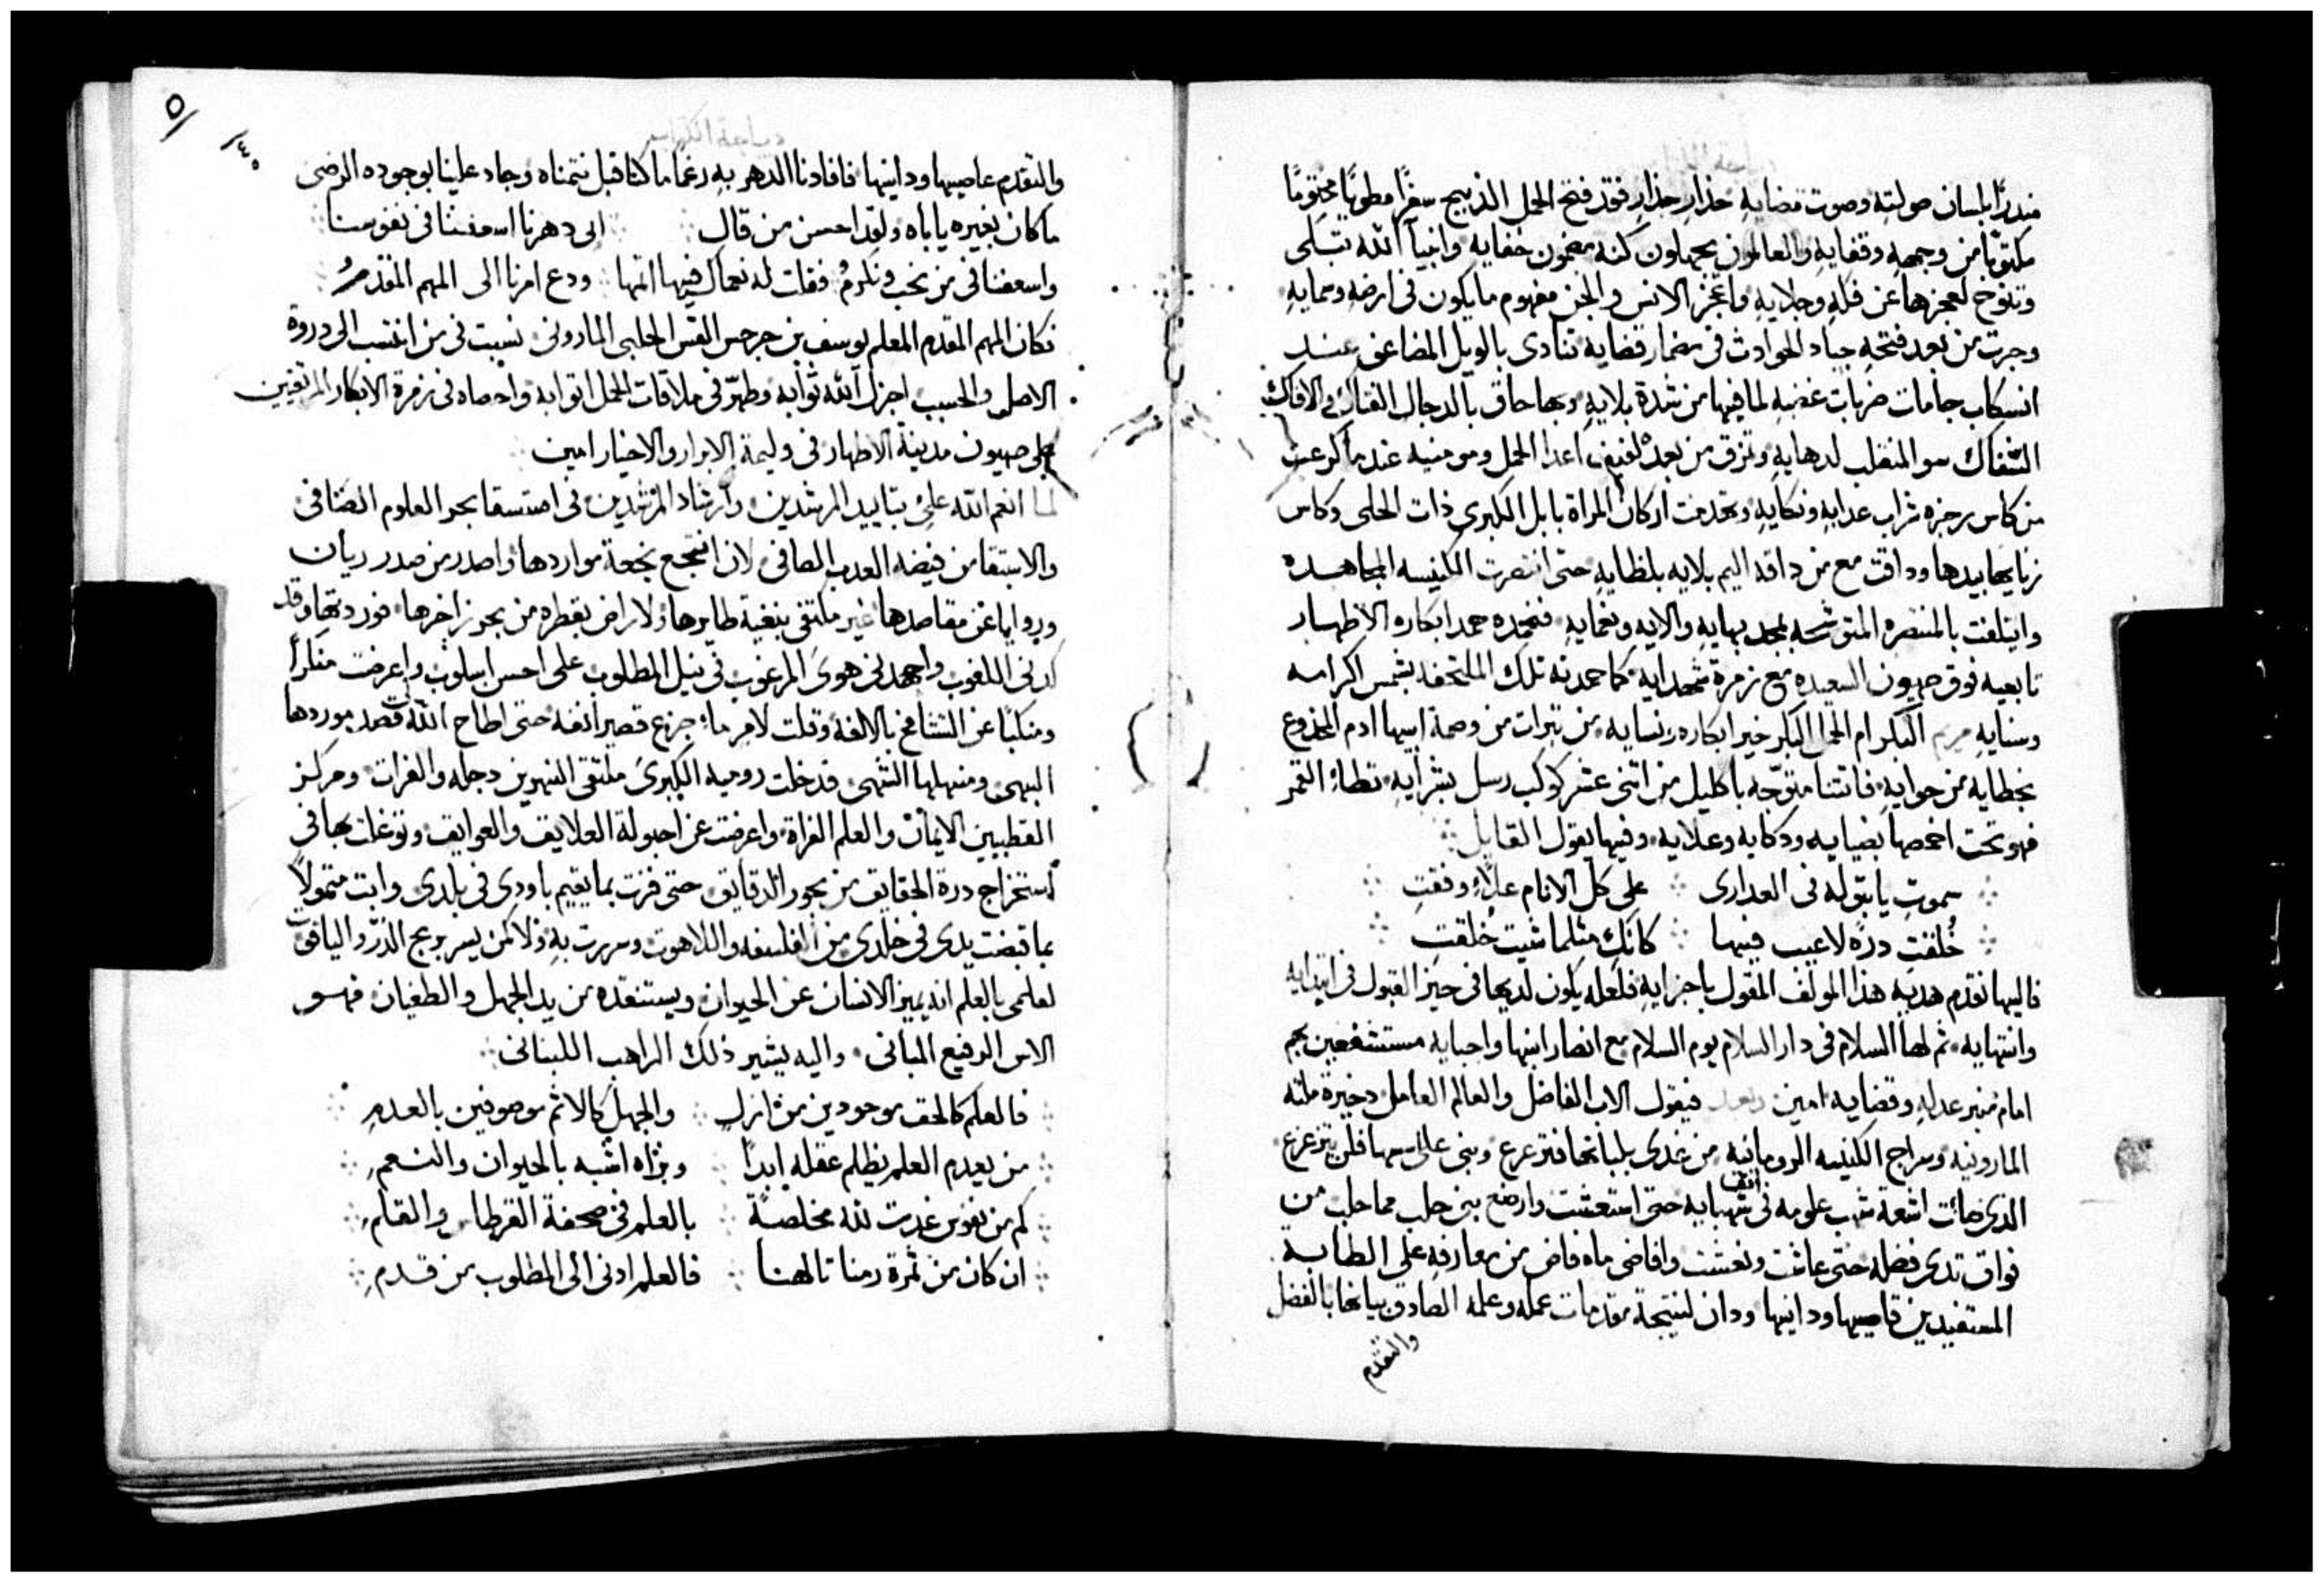 منذرًا بلسان صولته وصوت قضايه حذارِ حذارِ فقد فتح الحمل الذبيح سفرًا مطويًا مختومًا
مكتوبًا من وجهه وقفايه والعالمون يجهلون كنه مضمون خفايه وانبيآ الله تبتلى
وتنوح لعجزها عن فكه وجلايه واعجز الانس والجن مفهوم ما يكون فى ارضه وسمايه
وجرت من بعد فتحه جياد الحوادث فى مضمار قضايه تنادى بالويل المضاعف عند
انسكاب جامات ضربات غضبه لما فيها من شدة بلايه وبها حاق بالدجال الفتاك والافاك
السفاك سو المنقلب لدهايه وتمزق من بعد لفيف اعدا الحمل ومومنيه عندما كرعت
من كاس رجزه شراب عدابه ونكايه وتخدمت اركان المراة بابل الكبرى ذات الحلى وكاس
زناها بيدها وداقت مع من داقه اليم بلايه بلظايه حتى انتصرت الكنيسه المجاهده
وايتلفت بالمنتصره المتوشحه بمجد بهايه والايه ونعمايه فنحمده حمد ابكاره الاطهار
تابعيه فوق صهيون السعيده مع زمرة شهدايه كما حمدته تلك الملتحفه بشمس اكرامه
وسنايه مريم البكر ام الحمل البكر خير ابكاره ونسايه من تبرات من وصمة ابيها ادم المخدوع
بخطايه من حوايه فانتنا متوّجه باكليل من اثنى عشر كوكب رسل بشرايه تطاء القمر
فهو تحت اخمصها بضيايه ودكايه وعلايه وفيها يقول القايل
سموتِ يا بتوله فى العدارى على كل الانام علاءً وفقتِ
خُلقتِ درّه لا عيب فيها كانكِ مثلما شيت خُلقتِ
فاليها نقدم هديه هذا المولف المقول باجزايه فلعله يكون لديها فى حيز القبول فى ابتدايه
وانتهايه ثم لها السلام فى دار السلام يوم السلام مع انصار ابنها واحبايه مستشفعين بهم
امام منبر عدله وقضايه امين وبعد فيقول الاب الفاضل والعالم العامل دخيرة ملته
المارونيه وسراج الكنيسه الرومانيه من غدى بلبانها فترعرع وبنى على اسها فلن يتزعزع
الدى ضاءت اشعة شهب علومه فى افق شهبايه حتى استعشت وارضع بنى حلب مما حلب من
فواق تدى فضله حتى عاشت ونعشت وافاض ماء فاض من معارفه على الطلبه
المستفيدين قاصيها ودانيها ودان لنتيجة مقدمات عمله وعلمه الصادق بيانها بالفضل
والتقدم
ديباجة الكراس
والتقدم عاصيها ودانيها فافادنا الدهر به رغما ما كنا قبل نتمناه وجاد علينا بوجوده الرضى
ما كان بغيره ياباه ولقد احسن من قال ابى دهرنا اسعفنا فى نفوسنا
واسعفنا فى من نحب ونكرمُ فقلت له نعماك فيها اتمها ودع امرنا الى المهم المقدمُ
فكان المهم المقدم المعلم يوسف بن جرجس القس الحلبى المارونى نسبت فى من انتسب الى دروة
الاصل والحسب اجزل الله ثوابه وطهّر فى ملاقات الحمل اثوابه واحصاه فى زمرة الابكار المرتفعين
على صهيون مدينة الاطهار فى وليمة الابرار والاخيار امين
لما انعم الله علىّ بتاييد المرشدين وارشاد المرشدين فى استسقا بحر العلوم الصافى
والاستقا من فيضه العدب الصافى لان انتجع نجعة مواردها واصدر من صدر ريان
وروايا عن مقاصدها غير مكتفى بنغية طايرها ولا راض بقطره من بحر زاخرها فوردتها وقد
كدنى اللغوب واجهدنى هوى المرغوب فى نيل المطلوب على احسن اسلوب واعرضت منكرًا
ومنكبًا عن التشامخ بالانفة وقلت لامرٍ ما جزع قصير انفه حتى اطاح الله قصد موردها
البهى ومنهلها الشهى فدخلت روميه الكبرى ملتقى النهرين دجله والفرات ومركز
القطبين الايمان والعلم الفراة واعرضت عن احبولة العلايق والعوايق وتوغلت بها فى
استخراج درة الحقايق من بحور الدقايق حتى فزت بما يقيم باودى فى بلدى وابت متمولًا
بما قبضت يدى فى خلدى من الفلسفه واللاهوت وسررت به ولا كمن يسر بربح الدّر والياقوت
لعلمى بالعلم انه يميز الانسان عن الحيوان ويستنقده من يد الجهل والطغيان فهو
الاس الرفيع المبانى واليه يشير ذلك الراهب اللبنانى
فالعلم كالحق موجودين من ازلٍ والجهل كالاثم موصوفين بالعدمِ
من يعدم العلم يظلم عقله ابدًا وتراه اشبه بالحيوان والنعمِ
كم من نفوس غدت لله مخلصةً بالعلم فى صحفة القرطاس والقلمِ
ان كان من ثمرة رمنا تالهنا فالعلم ادنى الى المطلوب من قدمِ